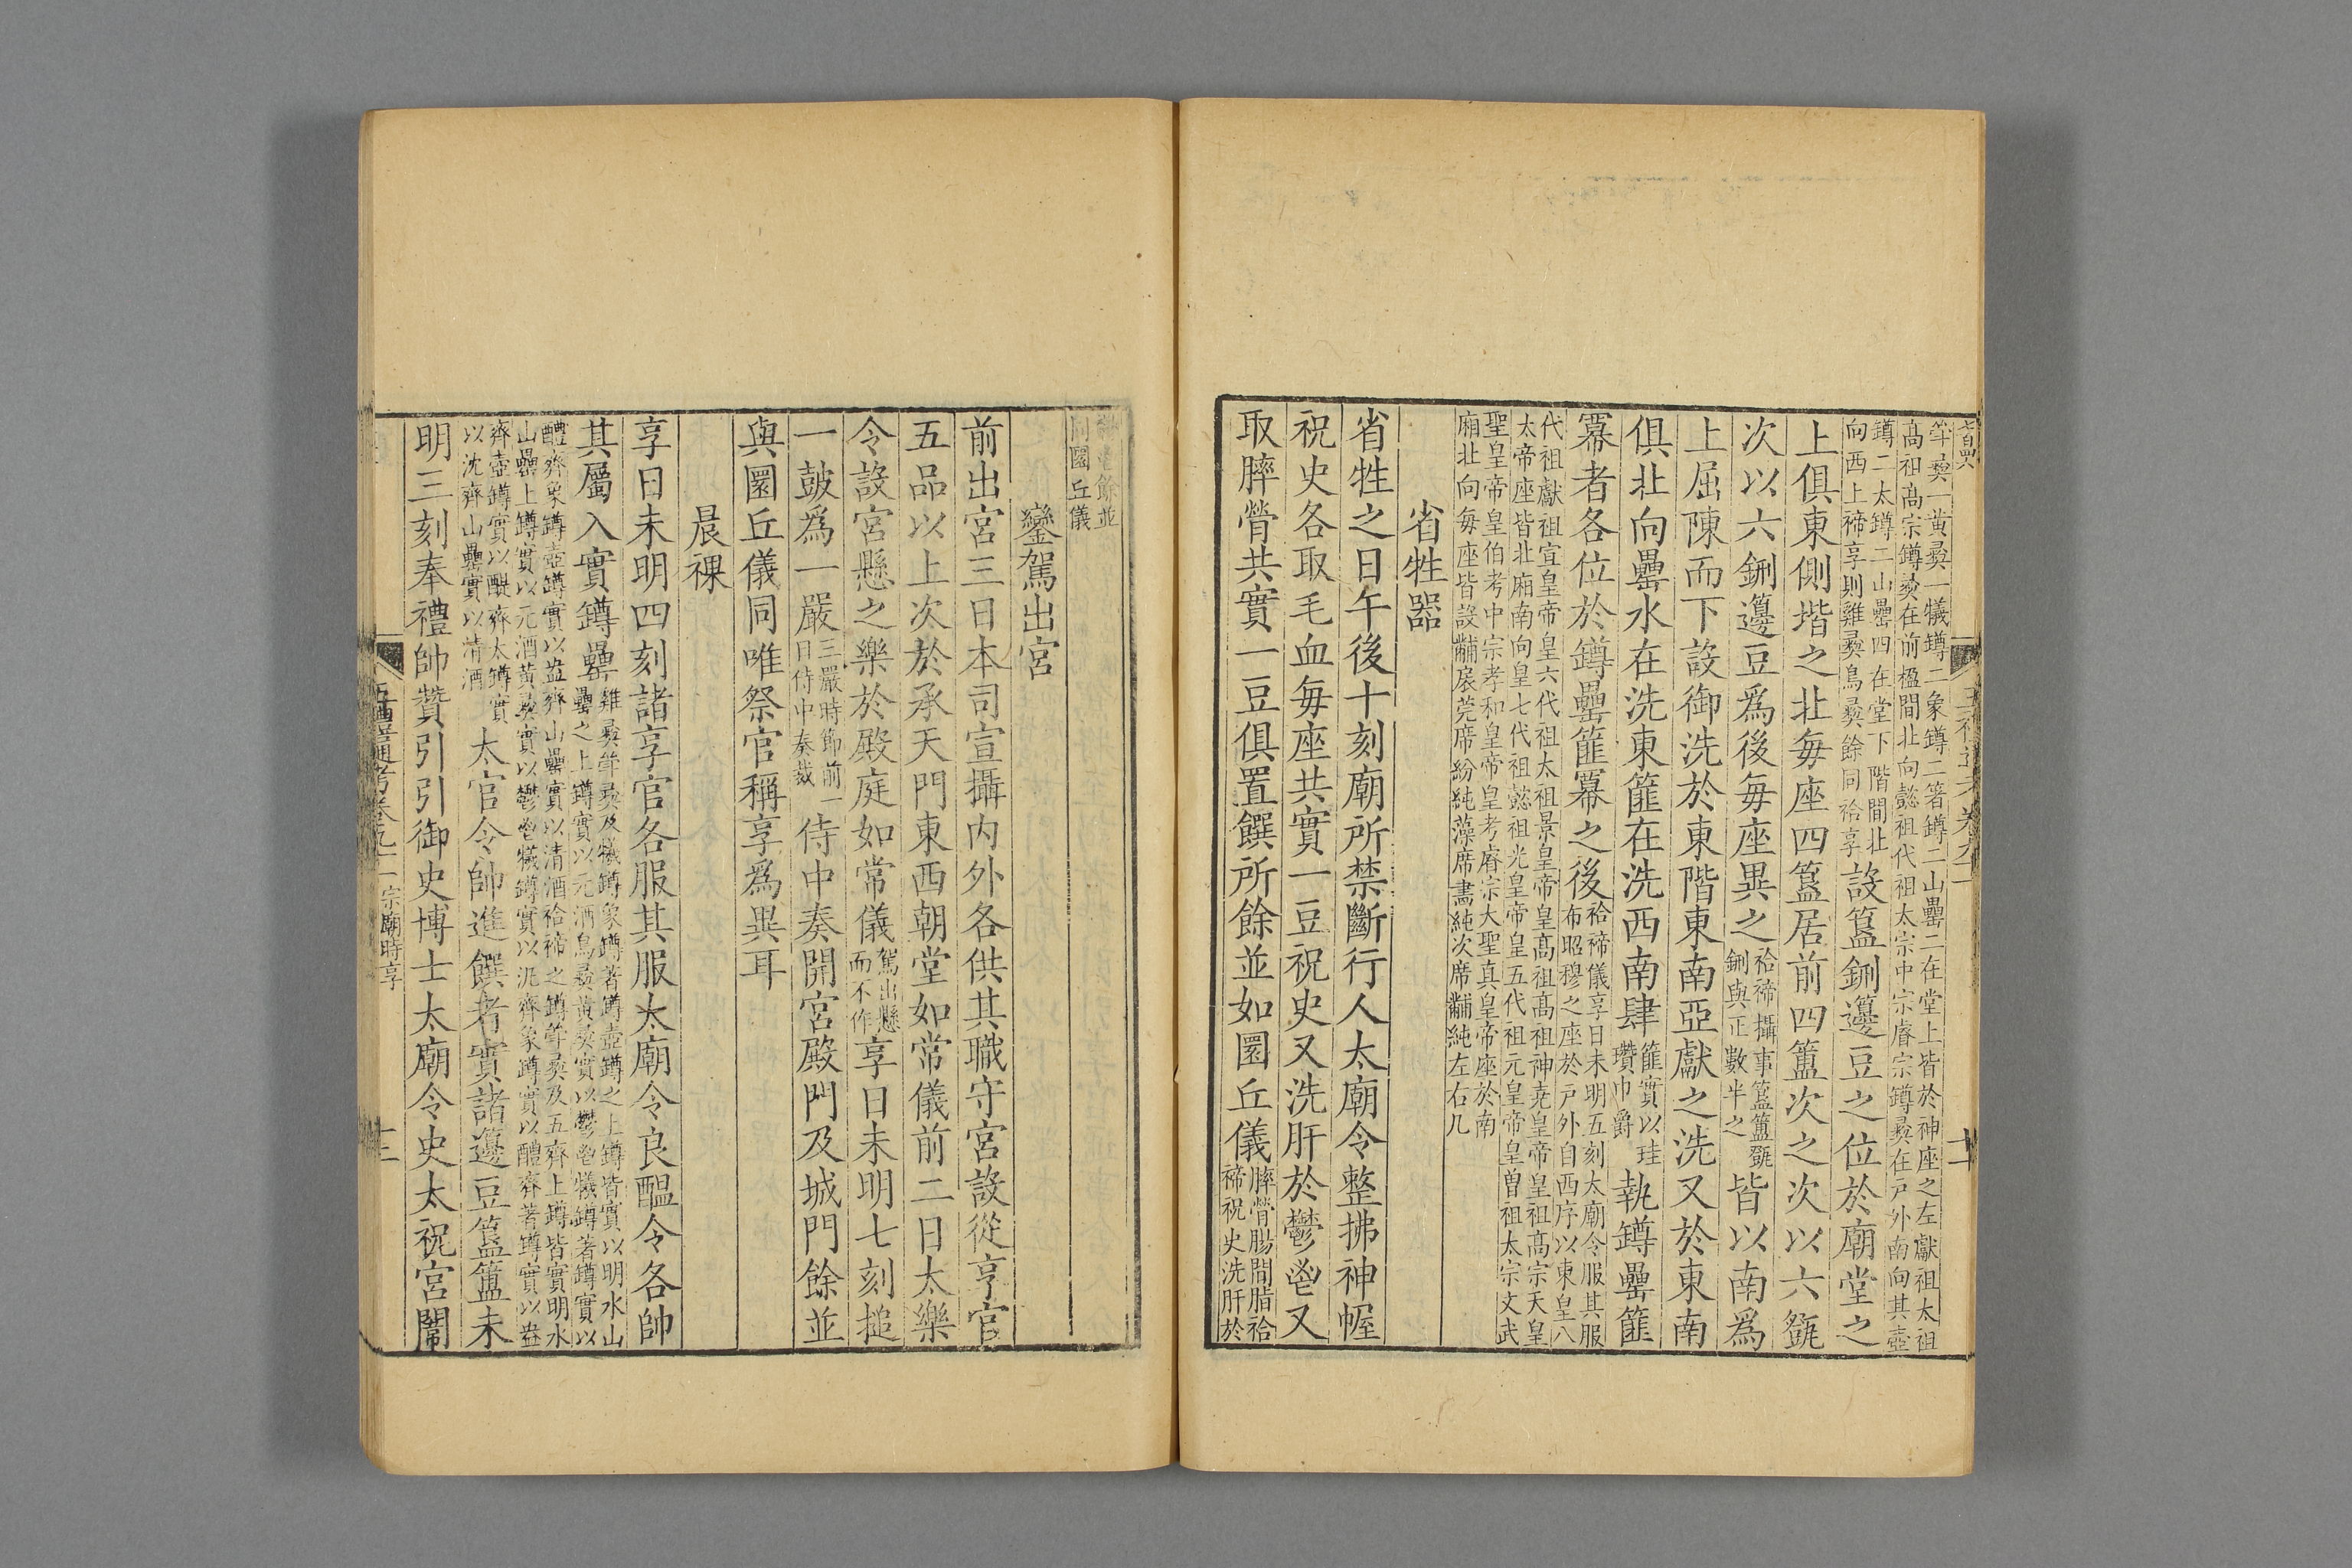 斝彝一黃彝一犧罇二象罇二著罇二山罍二在堂上皆於神座之左獻祖太祖
高祖高宗罇彝在前楹間北向懿祖代祖太宗中宗睿宗罇彝在戶外南向其壺
罇二太罇二山罍四在堂下階間北
向西上禘享則雞彝鳥彝餘同祫享設簋鉶籩豆之位於廟堂之
上俱東側堦之北每座四簋居前四簠次之次以六㽅
次以六鉶籩豆爲後每座異之祫禘攝事簋簠㽅
鉶與正數半之皆以南爲
上屈陳而下設御洗於東階東南亞獻之洗又於東南
俱北向罍水在洗東篚在洗西南肆篚實以珪
瓚巾爵執罇罍篚
冪者各位於罇罍篚冪之後祫禘儀享日未明五刻太廟令服其服
布昭穆之座於戶外自西序以東皇八
代祖獻祖宣皇帝皇六代祖太祖景皇帝皇高祖高祖神堯皇帝皇祖高宗天皇
太帝座皆北廂南向皇七代祖懿祖光皇帝皇五代祖元皇帝皇曾祖太宗文武
聖皇帝皇伯考中宗孝和皇帝皇考睿宗大聖真皇帝座於南
廂北向每座皆設黼扆莞席紛純藻席畫純次席黼純左右几
省牲器
省牲之日午後十刻廟所禁斷行人太廟令整拂神幄
祝史各取毛血每座共實一豆祝史又洗肝於鬱鬯又
取膟膋共實一豆俱置饌所餘並如圜丘儀膟膋腸間脂祫
禘祝史洗肝於
鬱鬯餘並
同圜丘儀
鑾駕出宮
前出宮三日本司宣攝內外各供其職守宮設從享官
五品以上次於承天門東西朝堂如常儀前二日太樂
令設宮懸之樂於殿庭如常儀駕出懸
而不作享日未明七刻搥
一鼓爲一嚴三嚴時節前一
日侍中奏裁侍中奏開宮殿門及城門餘並
與圜丘儀同唯祭官稱享爲異耳
晨祼
享日未明四刻諸享官各服其服太廟令良醞令各帥
其屬入實罇罍雞彝斝彝及犧罇象罇著罇壺罇之上罇皆實以明水山
罍之上罇實以元酒鳥彝黃彝實以鬱鬯犧罇著罇實以
醴齊象罇壺罇實以盎齊山罍實以清酒祫禘之罇斝彝及五齊上罇皆實明水
山罍上罇實以元酒黃彝實以鬱鬯犧罇實以泛齊象罇實以醴齊著罇實以盎
齊壺罇實以醍齊太罇實
以沈齊山罍實以清酒太官令帥進饌者實諸籩豆簋簠未
明三刻奉禮帥贊引引御史博士太廟令史太祝宮闈
五禮通考卷九一宗廟時享
十二